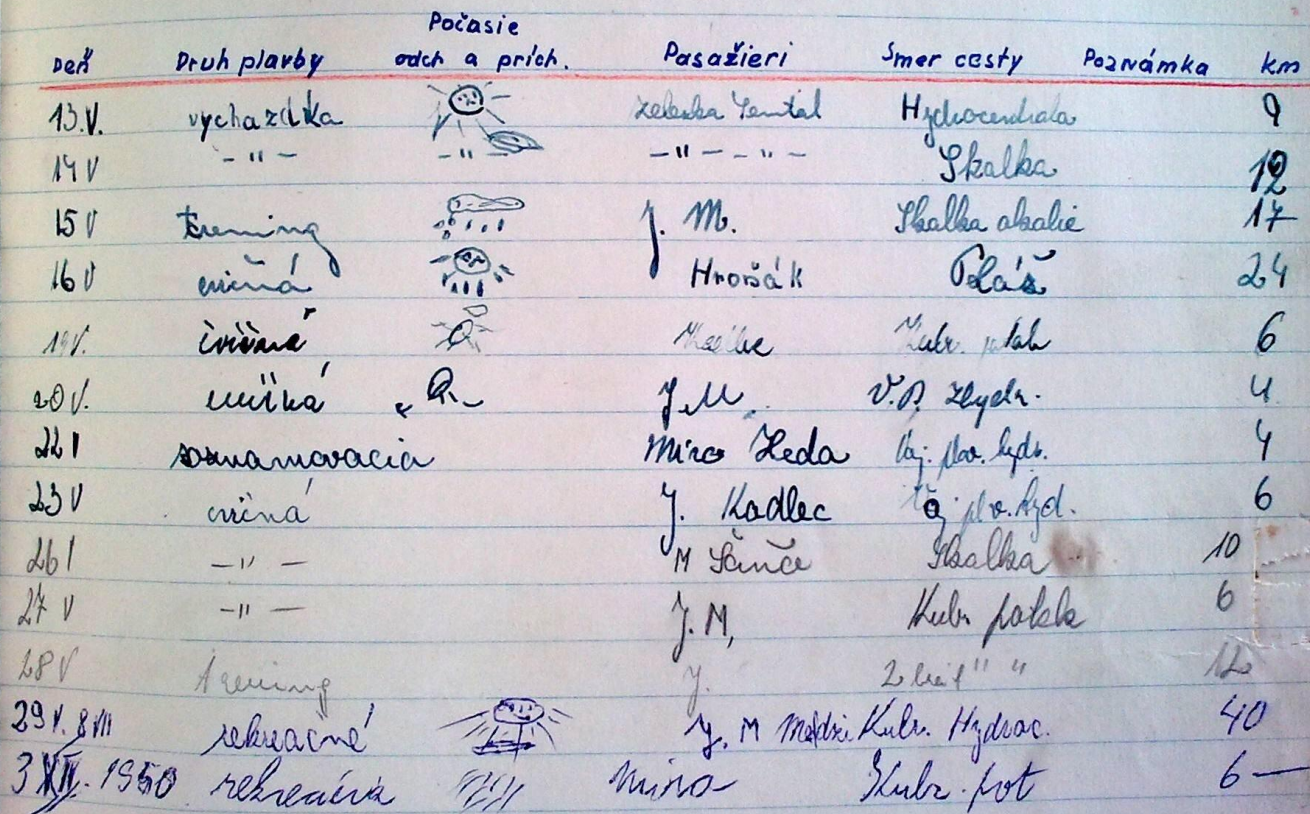 Počasie
Deň Druh plavby odch a prích. Pasažieri Smer cesty Poznámka km
13.V. vychazdka Hydrocentrala 9
14 V - " - - " - - " - - " - Skalka 12
15 V trening J. M. Skalka okolie 17
16 V cvičná Hroršák 24
19 V. cvičná Kubr. potok 6
20 V. cvičná J. M. 4
22 V soznamovacia Miro Heda plav. hydr. 4
23 V cvičná J. Kadlec hyd. 6
26 V - " - M Skalka 10
27 V - " - J. M, Kubr potok 6
28 V trening J. 2 krát " " 12
29 V. 8 VII rekreačné J. M Medzi Kubr. Hydroc. 40
3 XII. 1950 rekreačná Miro Kubr. pot 6 —